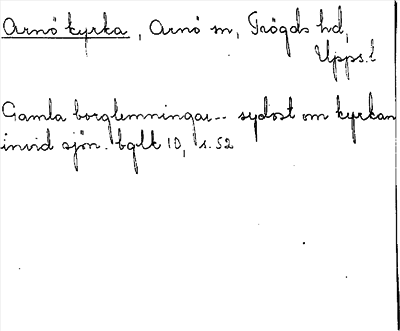 Arnö kyrka, Arnö sn, Trögds hd,
Upps. l
Gamla borglemningar -- sydost om kyrkan
invid sjön. bglt 10, s. 52